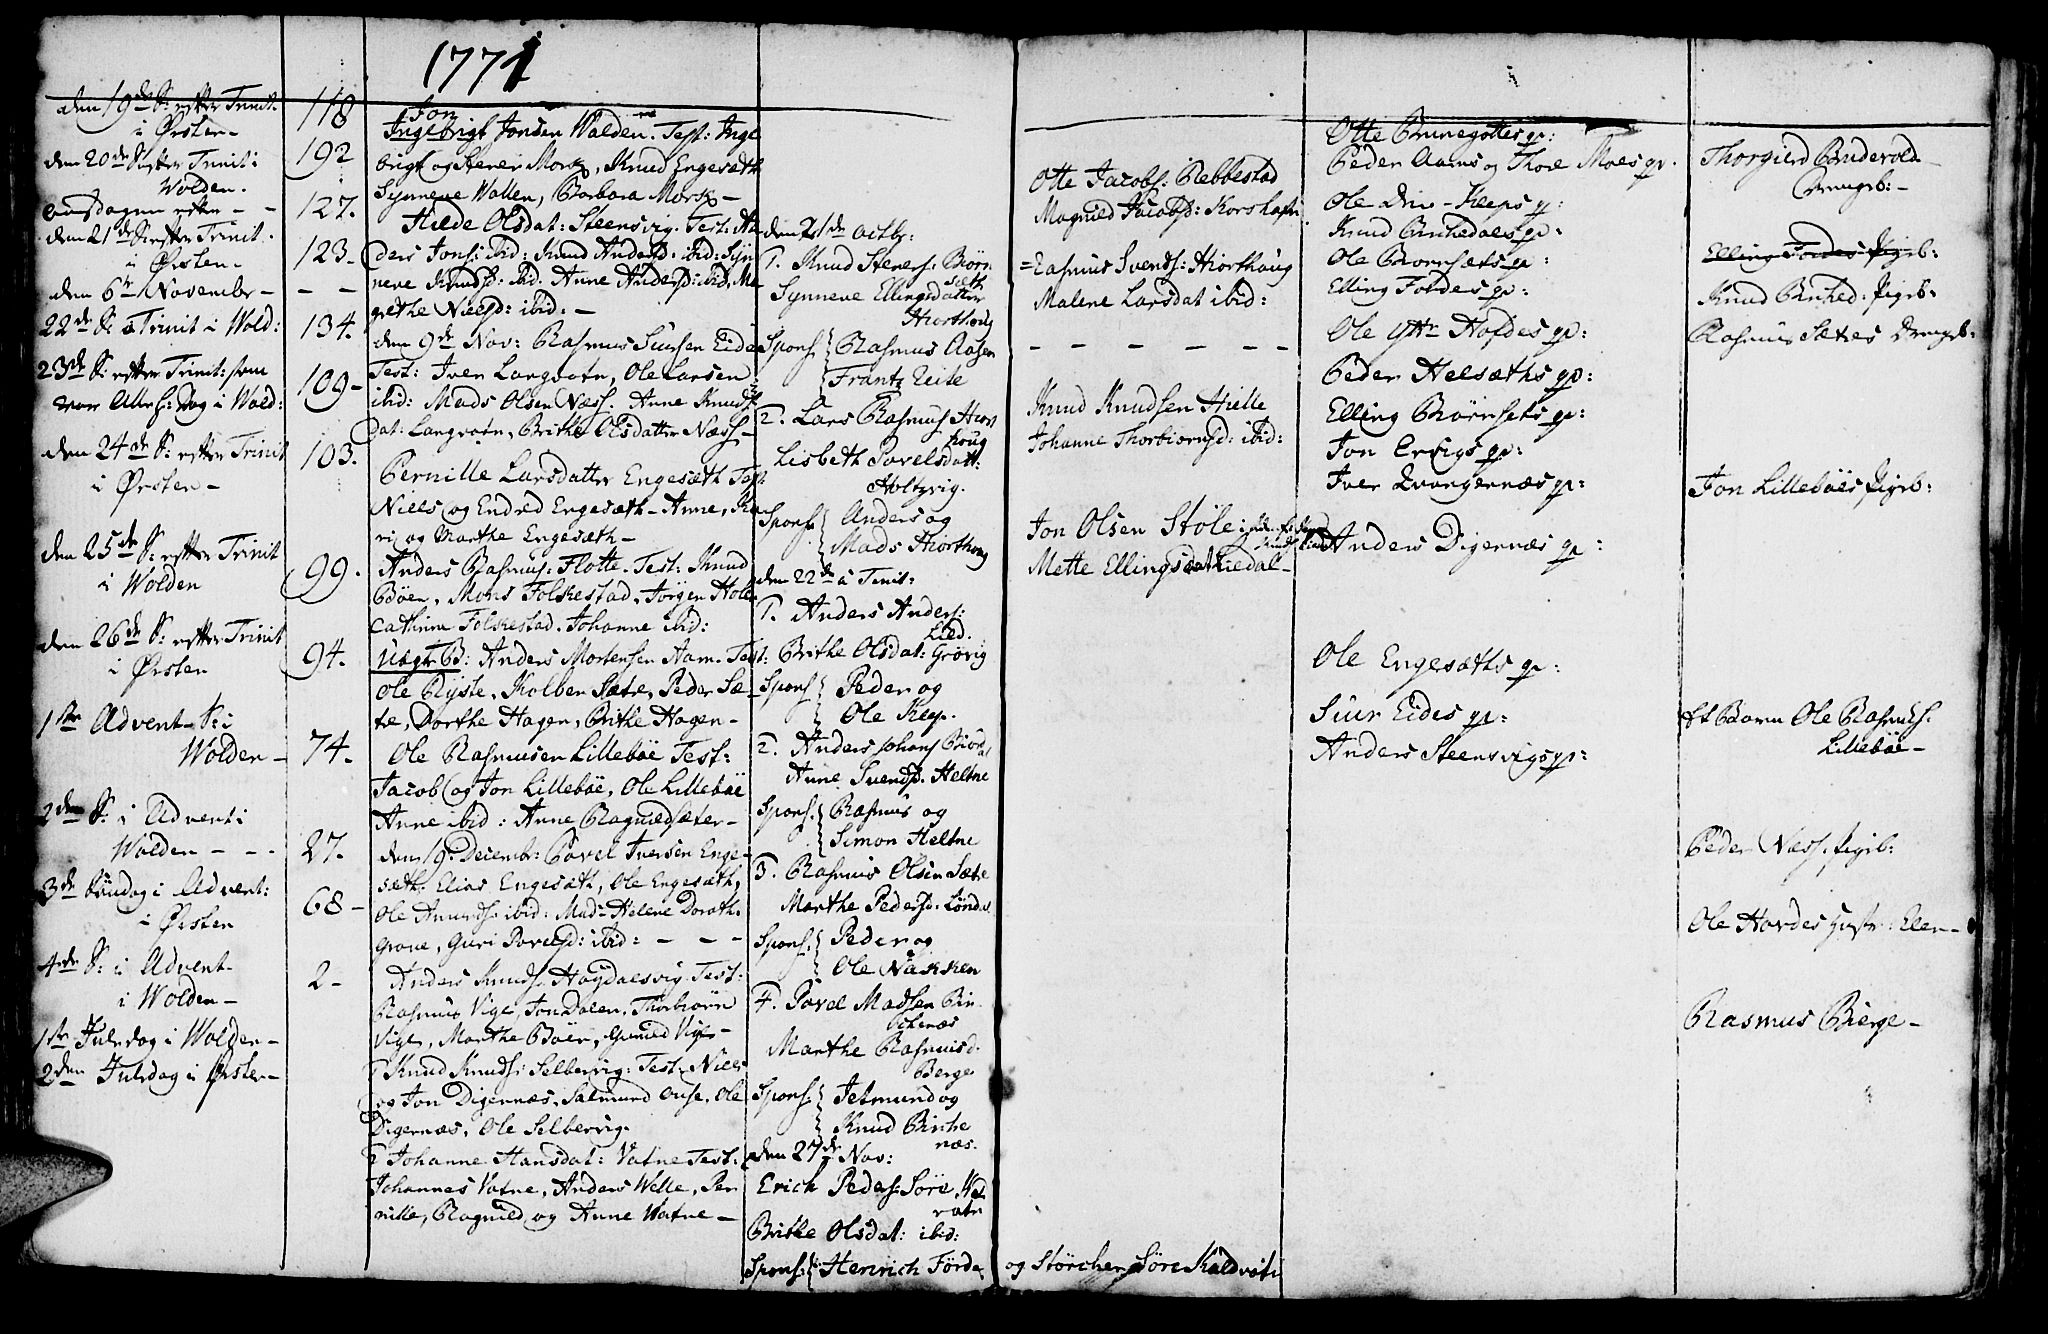 1771
den 19de S: efter Trinit.
i Ørsten -
den 20de S. efter Trinit:
Wolden.
Onsdagen efter - -
den 21de S. efter Trinit.
i Ørsten -
den 6te Novembr -
22de S: a Trinit i Wold:
23de S: efter Trinit: som
var Alle H: Dag i Wold:
den 24de S: efter Trinit
i Ørsten -
den 25de S: efter Trinit
i Wolden
den 26de S: efter Trinit
i Ørsten
1ste Advent S: i
Wolden -
2den S: i Advent i
Wolden - - -
3de Söndag i Advent:
i Ørsten
4de S: i Advent
i Wolden -
1ste Juledag i Wolden -
2den Juledag i Ørsten -
118
192
127.
123 -
- -
134.
109 -
103.
99.
94.
74.
27.
68 -
2 -
Jon
Ingebrigt Jonsen Walden. Test: Inge
brigt og Stener Mork, Knud Engesæth
Synneve Wallen, Barbara Mork -
Hilde Olsdat: Steensvig. Test: An
ders Jons: ibid: Knud Andersd: ibid: Syn
neve Knudsd: ibid. Anne Andersd: ibid, Ma
grethe Nielsd: ibid: -
den 9de Nov: Rasmus Siursen Eide
Test: Iver Langvatn, Ole Larsen
ibid: Mads Olsen Næss. Anne Knuds
dat: Langvatn, Brithe Olsdatter Næss -
Pernille Larsdatter Engesæth Test
Niels og Endred Engesæth - Anne, Ka
ri og Marthe Engesæth -
Anders Rasmus: Flotte. Test: Knud
Böen, Mons Folkestad, Jörgen Hole
Cathrine Folkestad. Johanne ibid:
Uægte B: Anders Mortensen Aam. Test:
Ole Ryste, Kolben Sætre, Peder Sæ -
tre, Dorthe Hagen, Brithe Hagen -
Ole Rasmusen Lillebøe Test:
Jacob og Jon Lillebøe, Ole Lillebøe
Anne ibid: Anne Ragnild sæter -
den 19. Decembr: Povel Iversen Enge -
sæth. Elias Engesæth, Ole Engesæth,
Ole Amunds: ibid: Mad: Helene Dorath.
Grove, Guri Povelsd: ibid: - - -
Anders Knuds: Høydalsvig Test:
Rasmus Vige, Jon Dalen, Thorbiørn
Vige, Marthe Böen, Gunild Vige -
Knud Knuds: Selbervig: Test: Niels
og Jon Digernæs, Salmund Ouse, Ole
Digernæs, Ole Selbervig.
Johanne Hansdat: Vatne Test:
Johannes Vatne, Anders Welle, Per
nille, Ragnild og Anne Watne -
den 21de Octbr:
1. Knud Steners: Biørn
sæth
Synneve Ellingsdatter
Hiorthoug
Spons: Rasmus Aasen
Frantz Reite
2. Lars Rasmus: Hiort
houg
Lisbeth Povelsdatt:
Holtzvig.
Spons: Anders og
Mads Hiorthoug
den 22de a Trinit:
1. Anders Anders:
Lied.
Brithe Olsdat: Grøvig
Spons: Peder og
Ole Keep.
2. Anders Johans
Anne Svendsd. Heltne
Spons: Rasmus og
Simon Heltne
3. Rasmus Olsen Sætre
Marthe Pedersd: Löndal
Spons: Peder og
Ole Nakken
4. Povel Madsen Bir
Marthe Rasmusd:
Berge
Spons: Jetmund og
Knud Birke
næs.
den 27de Nov:
Erich Peders: Søre Kal
vatn
Brithe Olsdat: ibid:
Spons: Henrich Förde og Störcher Søre Kaldvatn
Otte Jacobs: Rebbestad
Magnild Jacobsd: Korshafn
Rasmus Svends: Hiorthoug
Malene Larsdat ibid:
- - - - - -
Knud Knudsen Hielle
Johanne Thorbiørnsd: ibid:
Jon Olsen Støle
Mette Ellingsdat Liedal -
Otte Brunegottes gp:
Peder Aams og Thore Moes gp.
Ole Keeps gp:
Knud Birkedals gp:
Ole Biørnsets gp:
Elling Foldes gp:
Ole Yttr Hofdes gp:
Peder Helsæths gp:
Elling Biørnsets gp:
Jon Ervigs gp:
Iver Qvangernæs gp:
Anders Digernæs gp:
Ole Engesæths gp:
Siur Eides gp:
Anders Steensvigs gp:
Thorgierd Bruderold
Drengeb: -
Elling Foldes Pigeb:
Knud Birked: Pigeb:
Rasmus Sætres Drengeb:
Jon Lillebøes Pigeb:
Et Barn Ole Rasmus:
Lillebøe -
Peder Næss. Pigeb:
Ole Hovdes Hustr: Elen -
Rasmus Bierge -